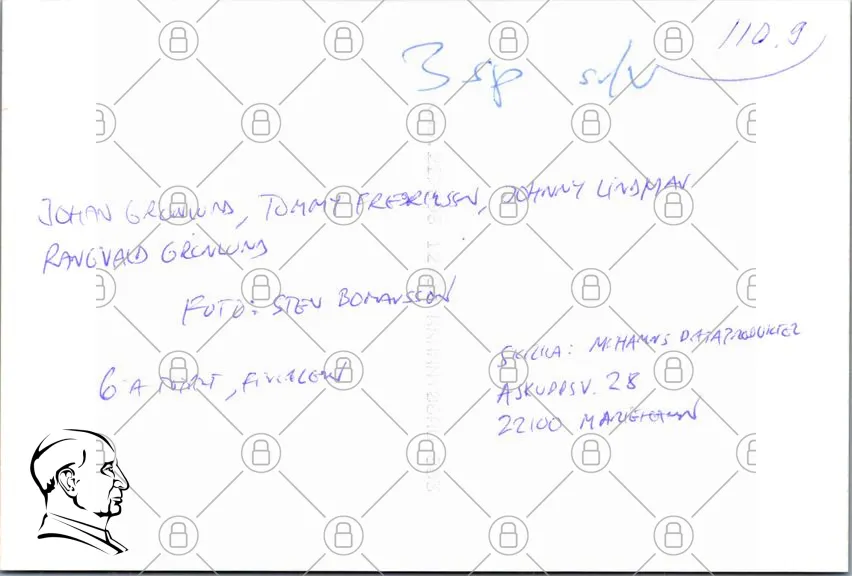 110.9
3 sp s/v
JOHAN GRÖNLUND, TOMMY FREDRIKSEN, JOHNNY LINDMAN
RANGVALD GRÖNLUND
FOTO: STEN BOMANSSON
6:A PLATT, FIVKLEN
SKICKA: MCHAMNS DATAPRODUKTER
ASKUDDSV. 28
22100 MARIEHAMN